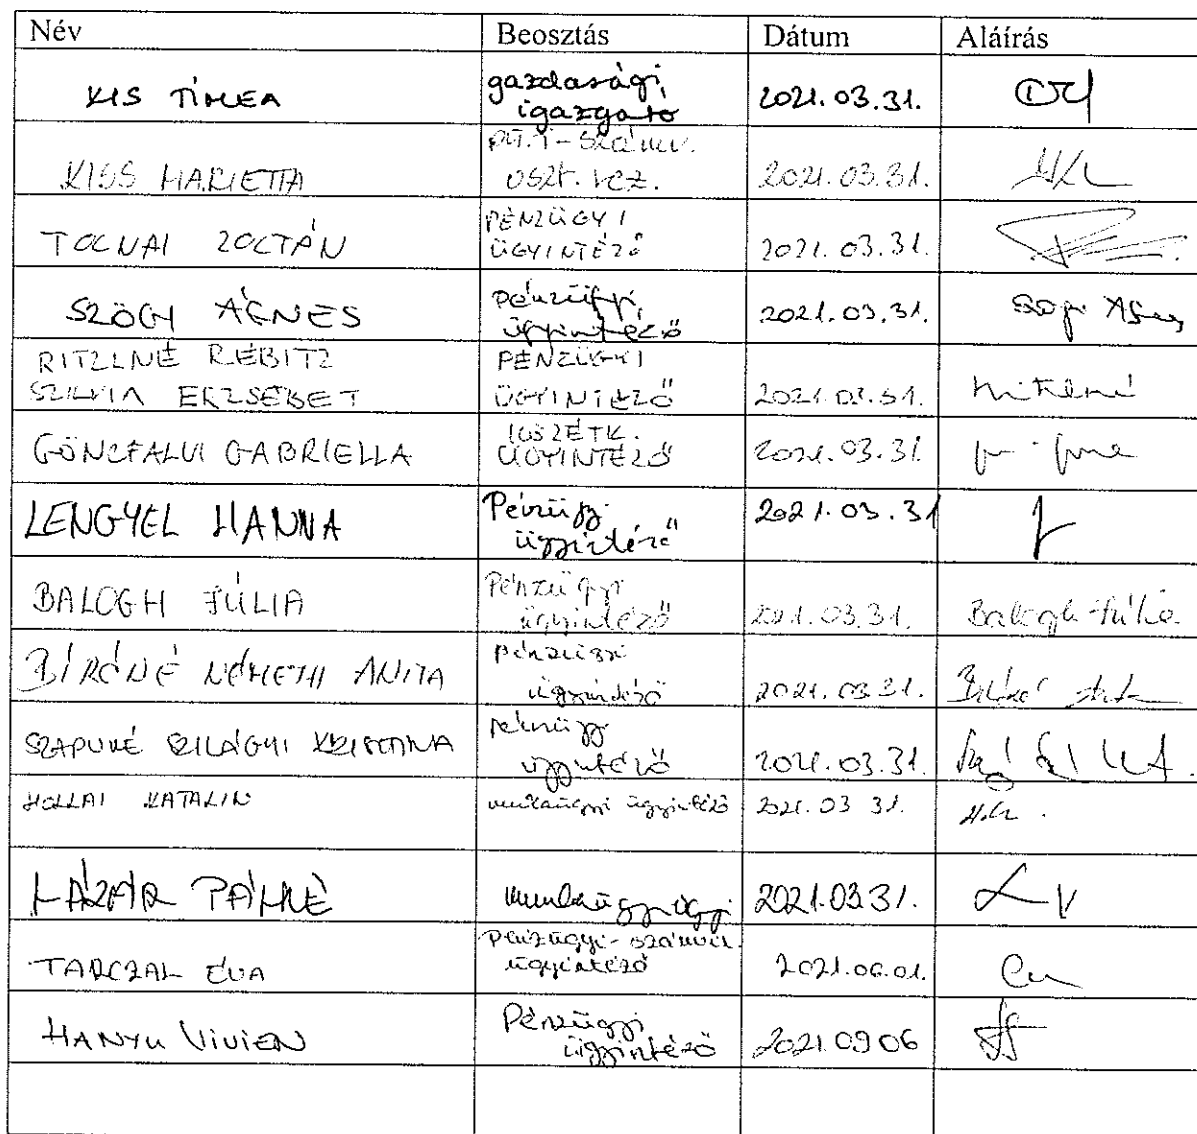 Név Beosztás Dátum Aláírás
KIS TÍMEA gazdasági igazgató 2021.03.31.
KISS MARIETTA pü.i-számv. oszt. vez. 2021.03.31.
TOLNAI ZOLTÁN PÉNZÜGYI ÜGYINTÉZŐ 2021.03.31.
SZÖGI ÁGNES pénzügyi ügyintéző 2021.03.31. Szögi Ágnes
RITZLNÉ REBITZ PÉNZÜGYI
SZILVIA ERZSÉBET ÜGYINTÉZŐ 2021.03.31.
GÖNCFALVI GABRIELLA ÜGYINTÉZŐ 2021.03.31.
LENGYEL HANNA Pénzügyi ügyintéző 2021.03.31
BALOGH JÚLIA Pénzügyi ügyintéző 2021.03.31. Balogh Júlia
BÍRÓNÉ NÉMETH ANITA pénzügyi ügyintéző 2021.03.31.
SZAPUNÉ SZILÁGYI KRISZTINA pénzügyi ügyintéző 2021.03.31.
HOLLAI KATALIN munkaügyi ügyintéző 2021.03 31.
LÁZÁR PÁLNÉ munkaügyi 2021.03.31.
TARCZAL ÉVA pénzügyi-számvit. ügyintéző 2021.06.01.
HANYU VIVIEN Pénzügyi ügyintéző 2021 09 06